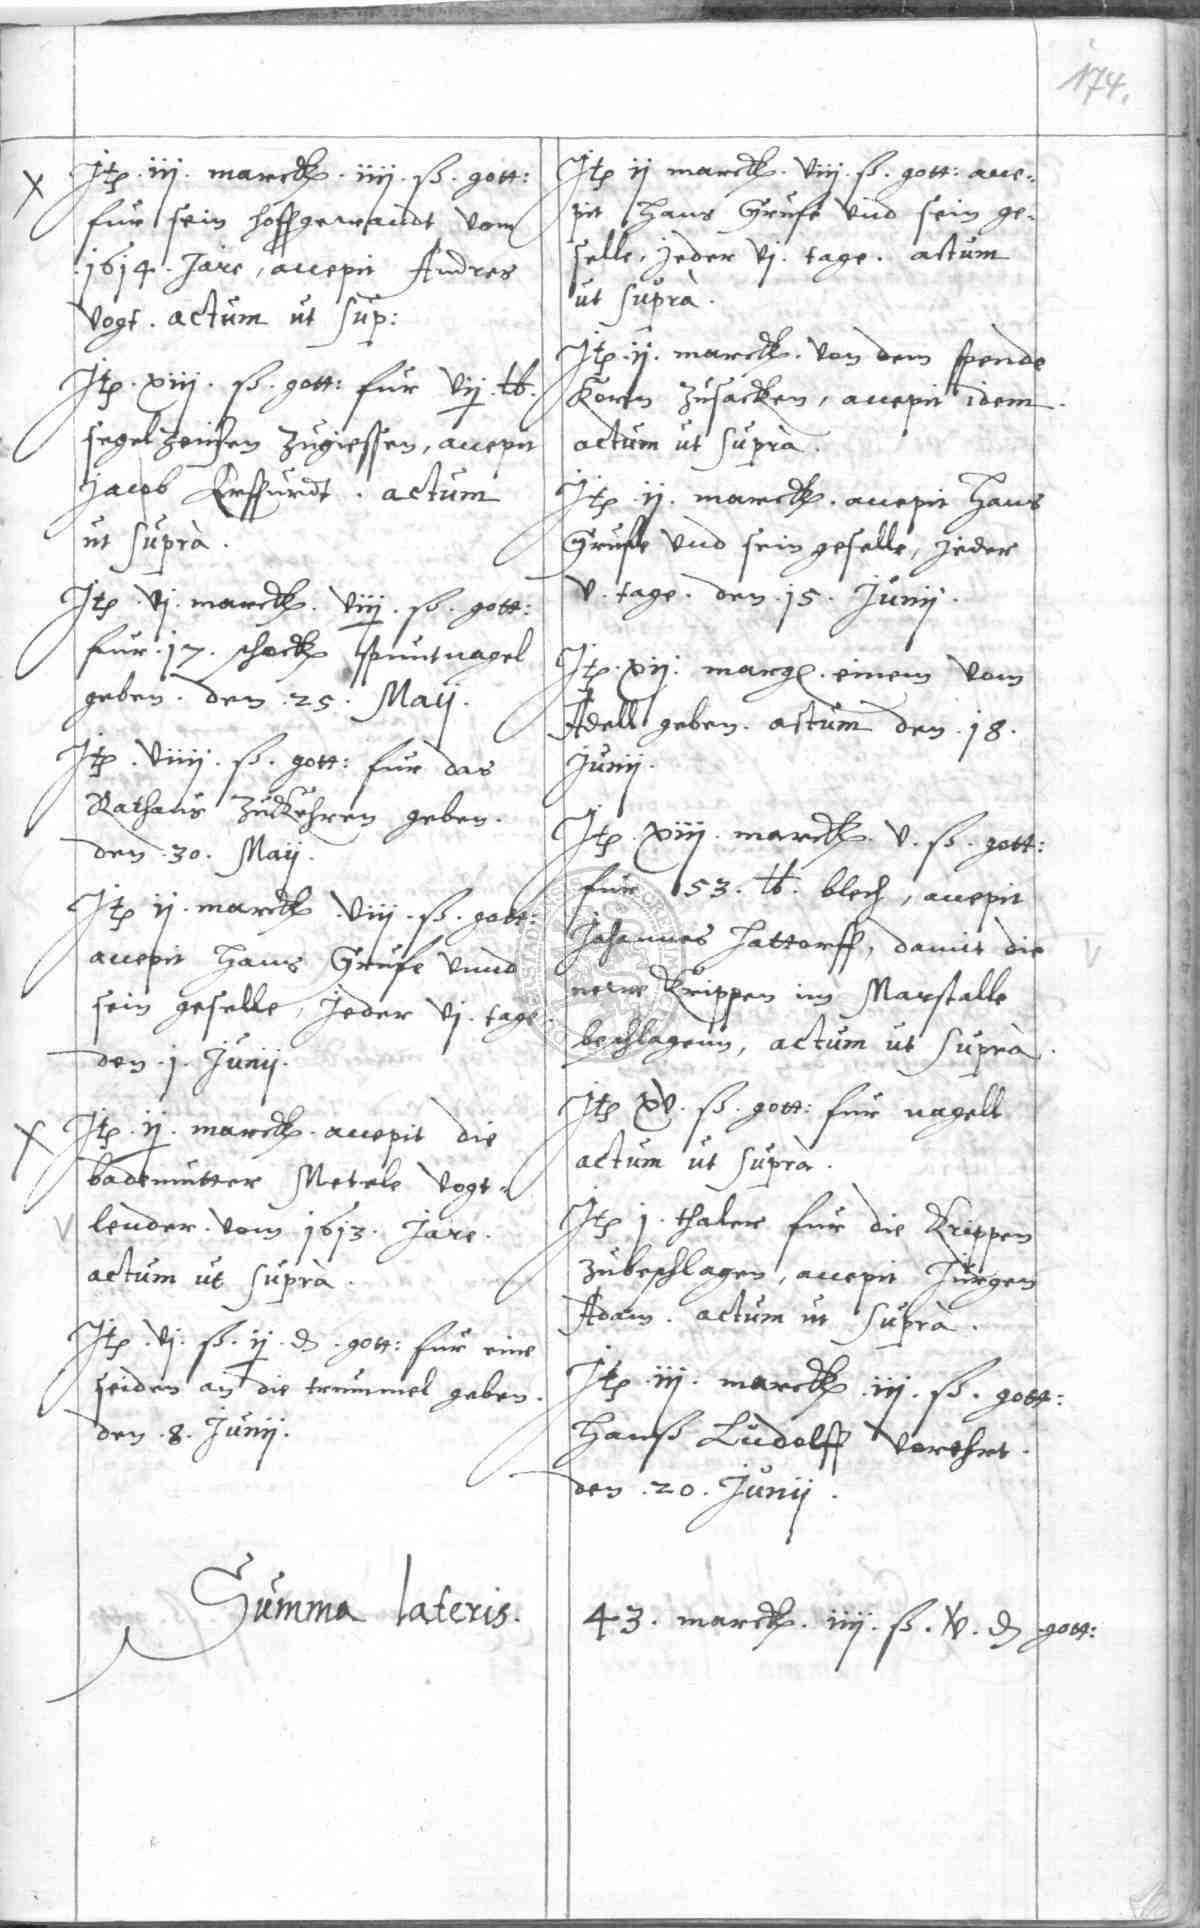 174.
Itē .iij. marckē. iiij. ß. gott:
fur sein hoffgewandt vom
.1614. Jare, accepit Andres
Vogt. actum ut sup:
Itē .xiij. ß. gott: fur vij. lb.
segelzeichen zugiessen, accepit
Jacob Erffurdt. actum
ut suprà.
Itē .vj. marckē. viij. ß. gott:
fur .17. schock spuntnagel
geben. den .25. Maij.
Itē .viiij. ß. gott: fur das
Rathaus zukehren geben.
den .30. Maij.
Itē ij. marckē .viij. ß. gott:
accepit Hans Grufe vnnd
sein geselle, jeder vj. tage.
den .j. Junij.
Itē .ij. marckē. accepit die
bademutter Metele Vogt-
lender. vom 1613. Jare.
actum ut suprà.
Itē .vj. ß. ij. d. gott: fur eine
seiden an die trummel geben.
den .8. Junij.
Itē ij marckē. viij. ß. gott: acce-
pit Hans Grufe vnd sein ge-
selle, jeder vj. tage. actum
ut suprà.
Itē .ij. marckē. von dem spende
Korn zusacken, accepit idem.
actum ut suprà.
Itē .ij. marckē. accepit Hans
Grufe vnd sein geselle, jeder
v. tage. den .15. Junij.
Itē .xij. margē. einem vom
Adell geben. actum den .18.
Junij.
Itē .xiij. marckē. v. ß. gott:
fur 53. lb. blech, accepit
Johannes Hattorff, damit die
newe Krippen im Marstalle
beschlagenn, actum ut suprà.
Itē xv. ß. gott: fur nagell
actum ut suprà.
Itē j. thaler fur die Krippen
zubeschlagen, accepit Jurgen
Adam. actum ut suprà.
Itē .iij. marckē .iij. ß. gott:
Hanß Ludolff verehrt.
den .20. Junij.
Summa lateris. 43. marckē. iiij. ß. v. d. gott: